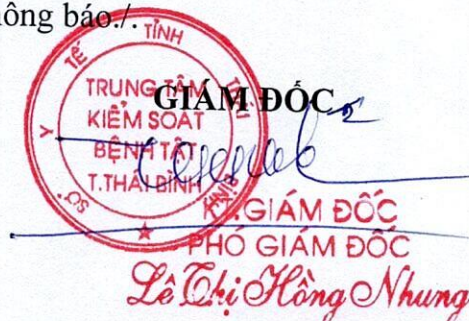 hông báo./.
SỞ Y TẾ TỈNH THÁI BÌNH
TRUNG TÂM
KIỂM SOÁT
BỆNH TẬT
T.THÁI BÌNH
★
GIÁM ĐỐC
KT.GIÁM ĐỐC
PHÓ GIÁM ĐỐC
Lê Thị Hồng Nhung